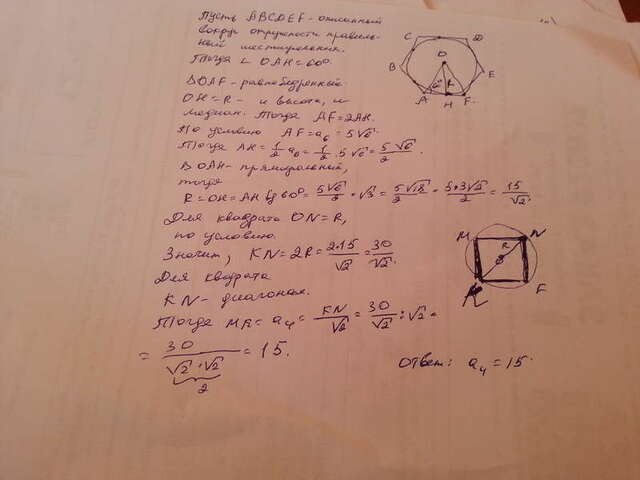 Пусть ABCDEF - описанный
вокруг окружности правиль-
ный шестиугольник.
Тогда ∠ OAH = 60°.
ΔOAF - равнобедренный.
OH = R - и высота, и
медиан. Тогда AF = 2AH.
По условию AF = a₆ = 5√6.
Тогда AH = 1/2 a₆ = 1/2 · 5√6 = 5√6/2.
Δ OAH - прямоугольный,
тогда
R = OH = AH tg 60° = 5√6/2 · √3 = 5√18/2 = 5·3√2/2 = 15/√2.
Для квадрата ON = R,
по условию.
Значит, KN = 2R = 2·15/√2 = 30/√2.
Для квадрата
KN - диагональ.
Тогда a₄ = KN/√2 = 30/√2 : √2 =
= 30/(√2 · √2) = 15.
2
Ответ: a₄ = 15.
C D
B O E
60° R
A H F
M N
R
O
K F